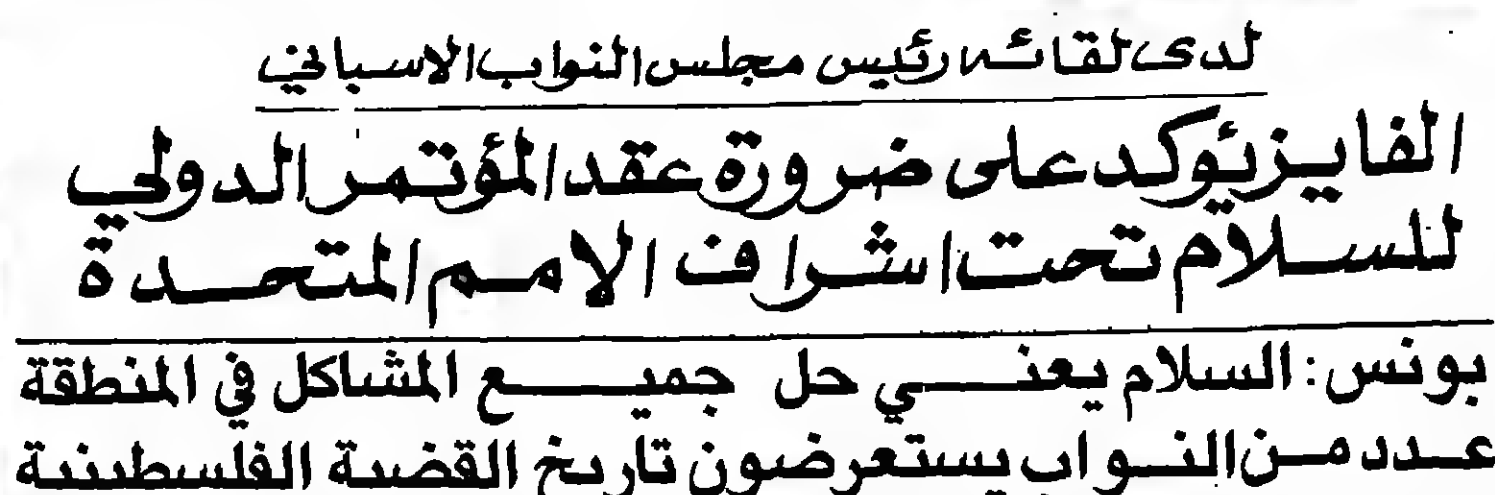 لدى لقائه رئيس مجلس النواب الاسباني
الفايز يؤكد على ضرورة عقد المؤتمر الدولي
للسلام تحت اشراف الامم المتحدة
بونس: السلام يعني حل جميع المشاكل في المنطقة
عدد من النواب يستعرضون تاريخ القضية الفلسطينية